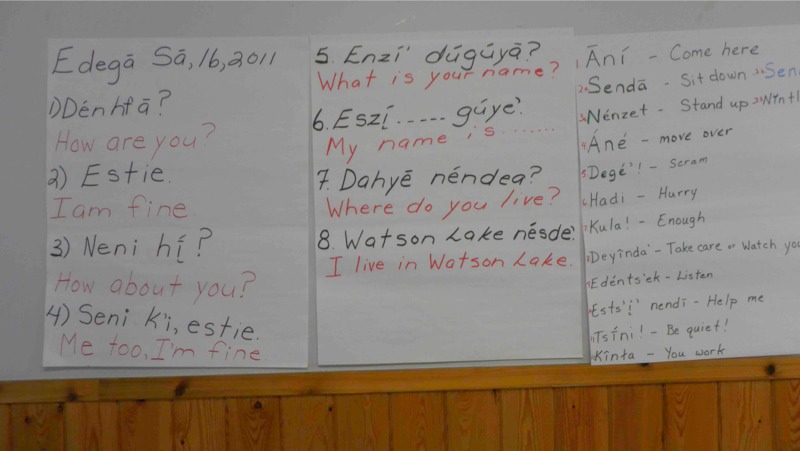 Edegā Sā, 16, 2011
1) Dénht'ā?
How are you?
2) Estie.
I am fine.
3) Neni hı̨́?
How about you?
4) Seni k'i, estie.
Me too, I'm fine
5. Enzí' dúgúyā?
What is your name?
6. Eszí ..... gúyé'.
My name is .......
7. Dahyē néndea?
Where do you live?
8. Watson Lake nésde'.
I live in Watson Lake.
1. Āní - Come here
2. Sendā - Sit down
3. Nénzet - Stand up
4. Áné - move over
5. Degé'! - Scram
6. Hadi - Hurry
7. Kula! - Enough
8. Deyīnda' - Take care or Watch
9. Edénts'ek - Listen
10. Ests'ı̨́' nendī - Help me
11. Tsíni! - Be quiet!
Kīnta - You work